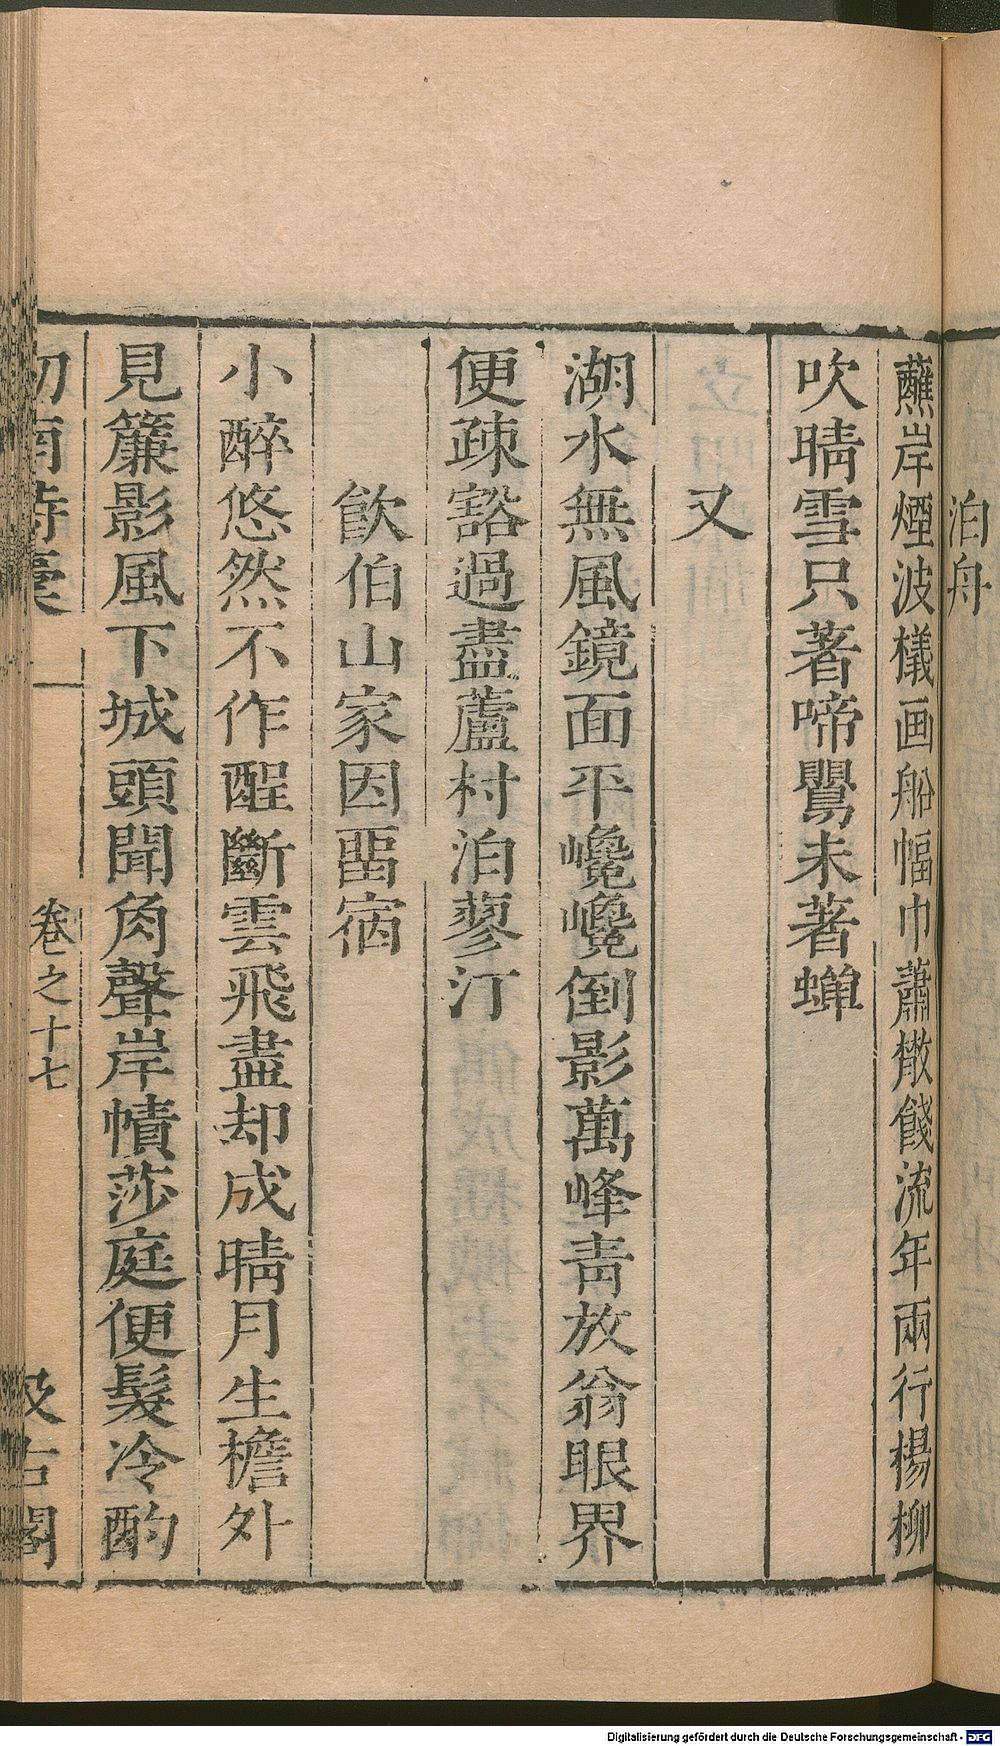 泊舟
蘸岸煙波檥画船幅巾蕭散餞流年兩行楊柳
吹晴雪只著啼鸎未著蟬
又
湖水無風鏡面平巉巉倒影萬峰青放翁眼界
便疎豁過盡蘆村泊蓼汀
飲伯山家因畱宿
小醉悠然不作酲斷雲飛盡却成晴月生檐外
見簾影風下城頭聞角聲岸幘莎庭便髮冷酌
劒南詩稾 卷之十七 汲古閣
Digitalisierung gefördert durch die Deutsche Forschungsgemeinschaft - DFG